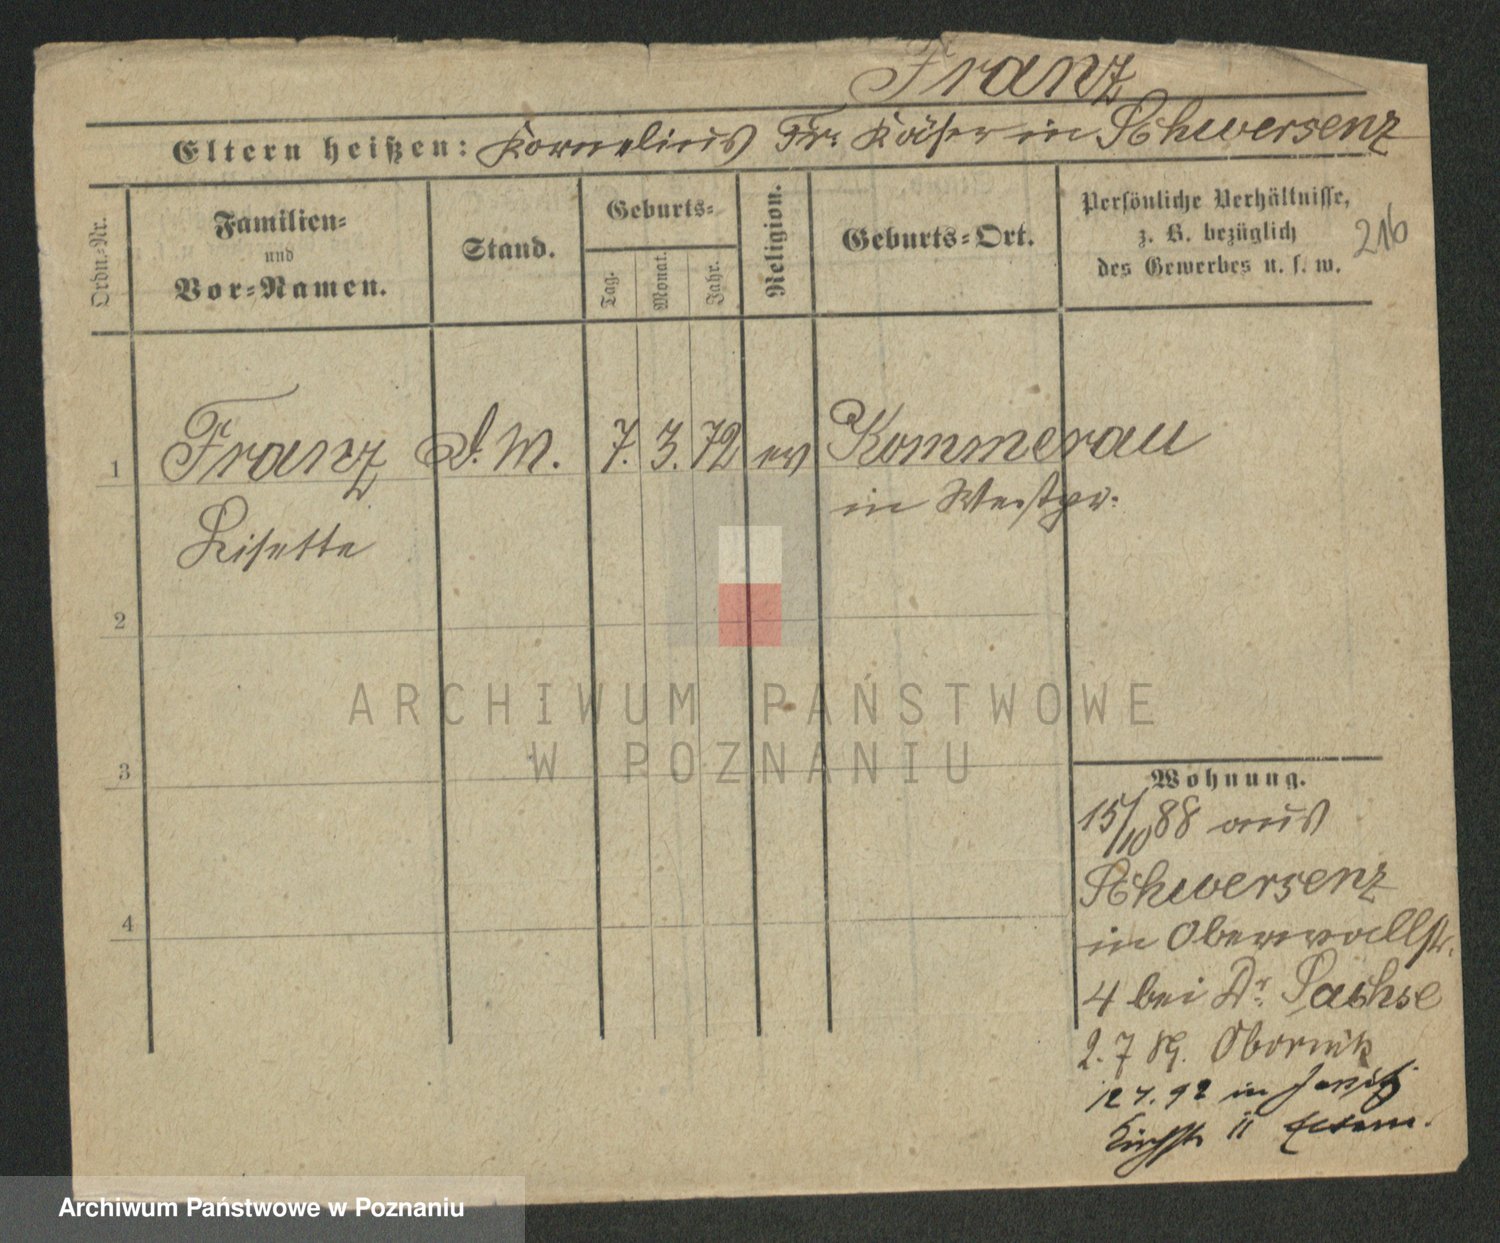 Franz
Eltern heißen: Kornelius Fr. Käser in Schwersenz
Ordn.-Nr.
Familien-
und
Vor-Namen.
Stand.
Geburts-
Tag.
Monat.
Jahr.
Religion.
Geburts-Ort.
Persönliche Verhältnisse,
z. B. bezüglich
des Gewerbes u. s. w.
216
1 Franz D. M. 7. 3. 72 ev Kommerau
Lisette in Westpr.
2
3
4
ARCHIWUM PAŃSTWOWE
W POZNANIU
Wohnung.
15/10 88 aus
Schwersenz
in Oberwallstr.
4 bei Dr. Sachse
2. 7 89. Obornik
12 7. 92 in
11 Eltern.
Archiwum Państwowe w Poznaniu